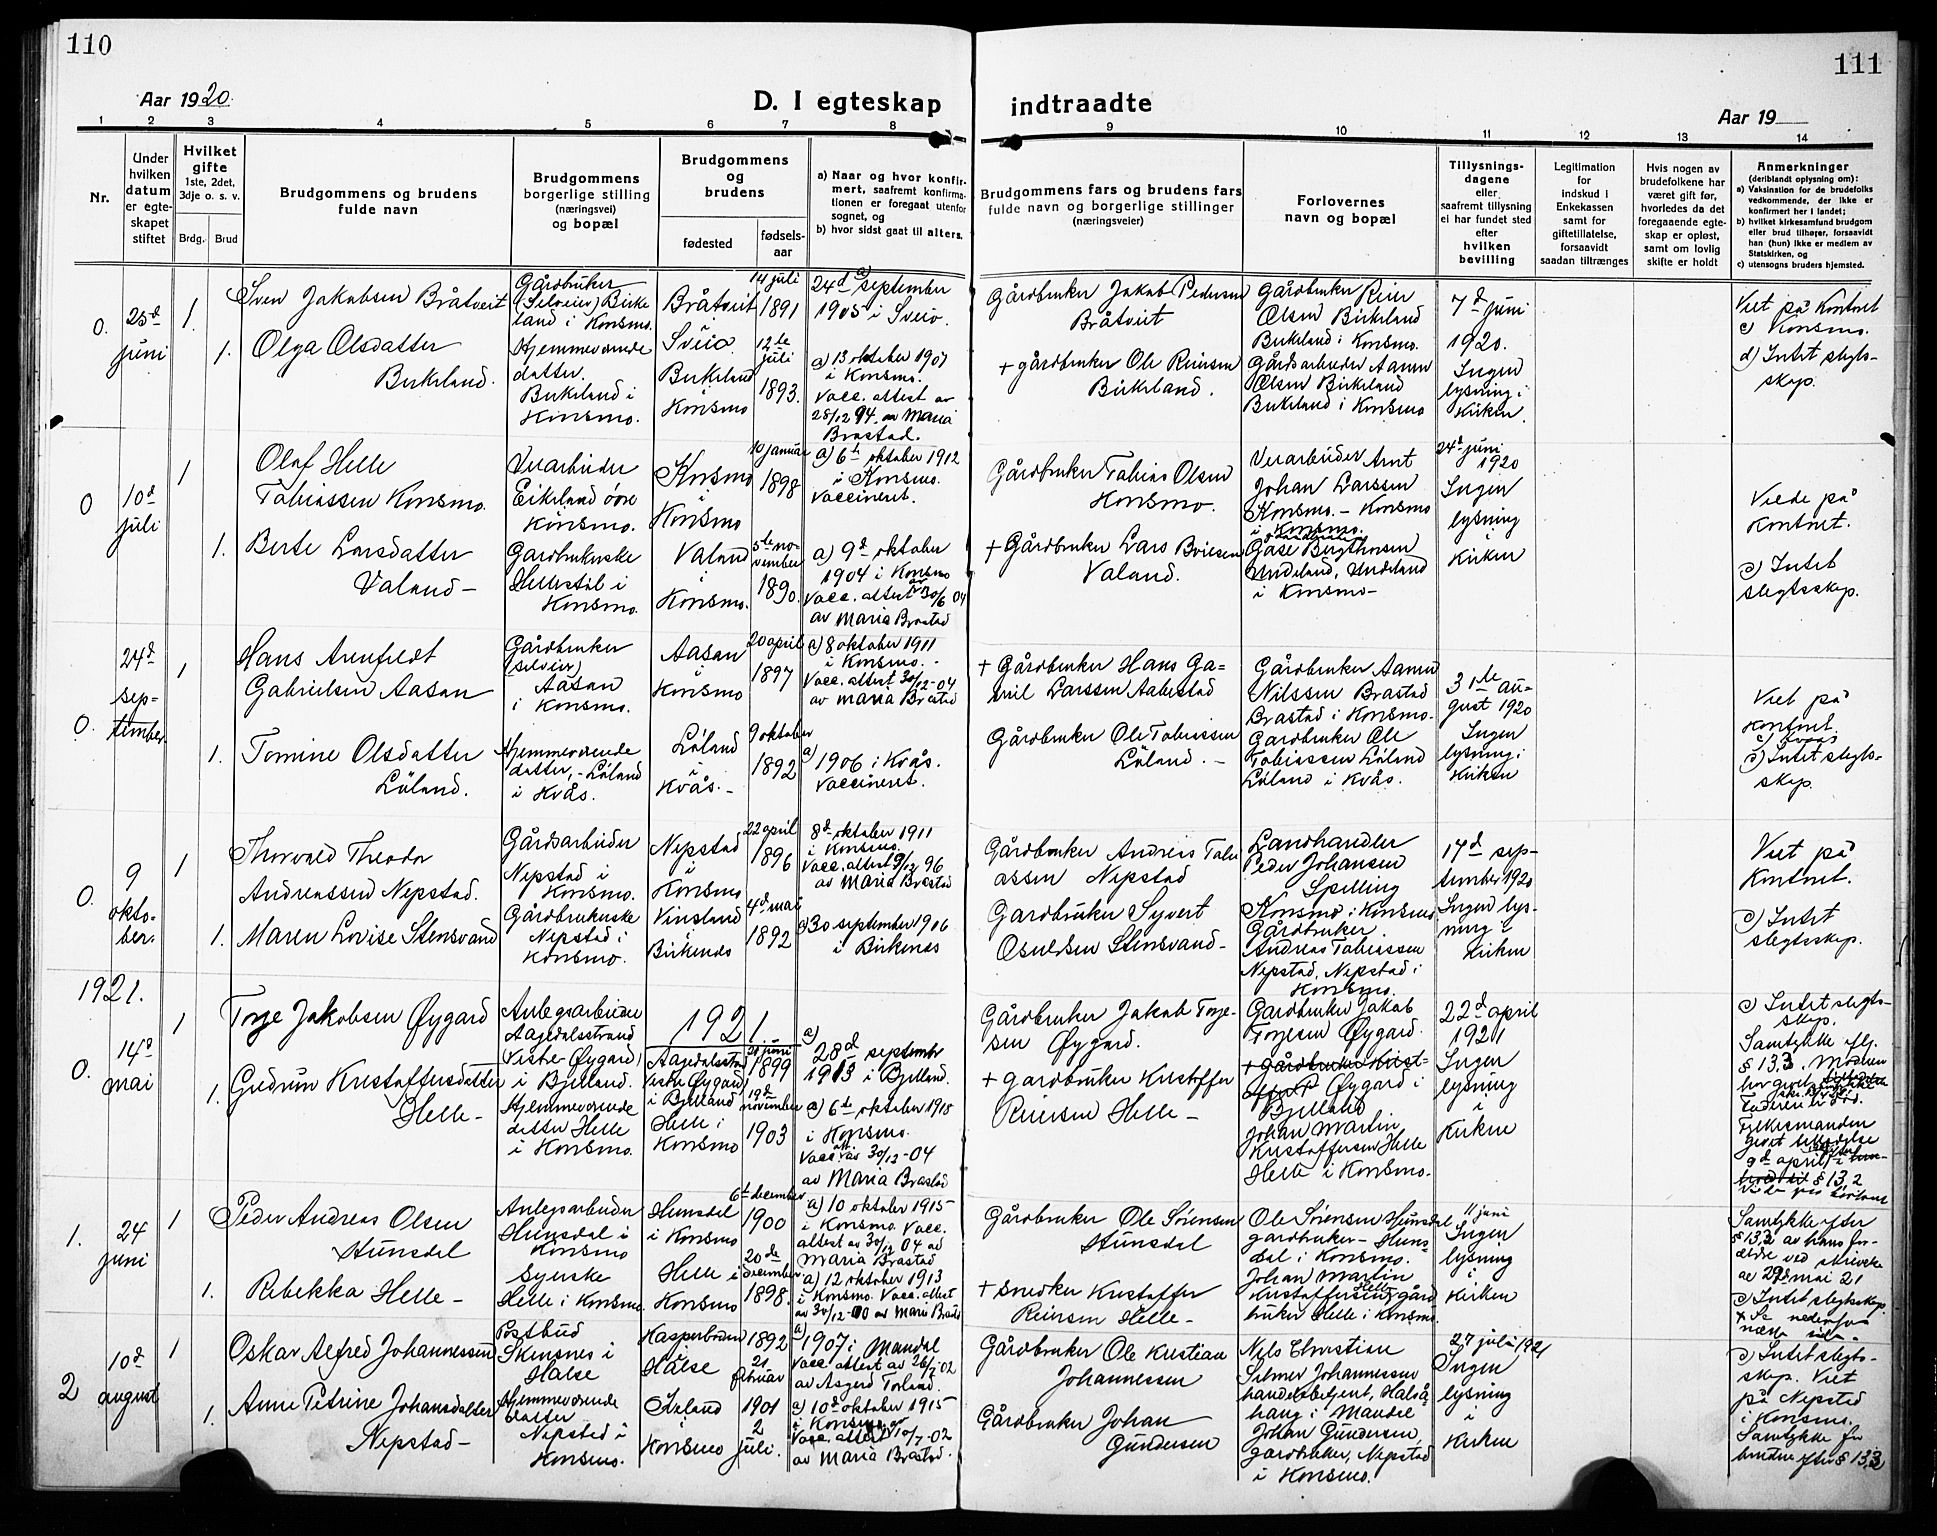 110
111
Aar 1920.
D. I egteskap indtraadte
Aar 19
1 2 3 4 5 6 7 8 9 10 11 12 13 14
Nr.
Under
hvilken
datum
er egte-
skapet
stiftet
Hvilket
gifte
1ste, 2det,
3dje o. s. v.
Brdg.
Brud
Brudgommens og brudens
fulde navn
Brudgommens
borgerlige stilling
(næringsvei)
og bopæl
Brudgommens
og
brudens
fødested
fødsels-
aar
a) Naar og hvor konfir-
mert, saafremt konfirma-
tionen er foregaat utenfor
sognet, og
b) hvor sidst gaat til alters.
Brudgommens fars og brudens fars
fulde navn og borgerlige stillinger
(næringsveier)
Forlovernes
navn og bopæl
Tillysnings-
dagene
eller
saafremt tillysning
ei har fundet sted
efter
hvilken
bevilling
Legitimation
for
indskud i
Enkekassen
samt for
giftetillatelse,
forsaavidt
saadan tiltrænges
Hvis nogen av
brudefolkene har
været gift før,
hvorledes da det
foregaaende egte-
skap er opløst,
samt om lovlig
skifte er holdt
Anmerkninger
(deriblandt oplysning om):
a) Vaksination for de brudefolks
vedkommende, der ikke er
konfirmert her i landet;
b) hvilket kirkesamfund brudgom
eller brud tilhører, forsaavidt
han (hun) ikke er medlem av
Statskirken, og
c) utensogns bruders hjemsted.
0.
25d
juni
1.
Sven Jakobsen Bråtveit
Gårdbruker
(Selveier) Birke
land i Konsmo.
Bråtveit
Sveio.
14 juli
1891
a)
24d september
1905 i Sveio.
Gårdbruker Jakob Pedersen
Bråtveit
Gårdbruker Reier
Olsen Birkeland
Birkeland i Konsmo.
7d juni
1920.
Ingen
lysning i
kirken.
Viet på Kontoret
c) Konsmo.
d) Intet slegts-
skap.
1.
Olga Olsdatter
Birkeland.
Hjemmeværende
datter.
Birkeland i
Konsmo.
Birkeland
i
Konsmo
12te
juli
1893.
a) 13 oktober 1907
i Konsmo.
Vacc. attest av
28/12 94. av Maria
Brastad.
+ gårdbruker Ole Reiersen
Birkeland.
Gårdsarbeider Aanen
Olsen Birkeland
Birkeland i Konsmo
0
10d
juli
1
Olaf Helle
Tobiassen Konsmo.
Veiarbeider
Eikeland øvre
Konsmo.
Konsmo
i
Konsmo
10 januar
1898
a) 6te oktober 1912
i Konsmo.
Vaccineret.
Gårdbruker Tobias Olsen
Konsmo.
Veiarbeider Arnt
Johan Larssen
Konsmo. - Konsmo
i Konsmo.
24d juni
1920
Ingen
lysning
i
kirken
Viede på
kontoret.
c) Intet
slegtsskap.
1.
Berte Larsdatter
Valand -
Gardbrukerske
Hellestøl i
Konsmo.
Valand
i
Konsmo.
5te no-
vember
1890.
a) 9d oktober
1904 i Konsmo
Vacc. attest av 30/6 04
av Maria Brastad
+ Gårdbruker Lars Breiesen
Valand.
Gårdbruker
Gåse Bergthorsen
Undeland, Undeland
i Konsmo -
0.
24d
sep-
tember
1
Hans Arnfeldt
Gabrielsen Aasan
Gårdbruker
(selveier)
Aasan
i Konsmo.
Aasan
i
Konsmo
20 april
1897
a) 8 oktober 1911
i Konsmo. -
Vacc. attest 30/12-04
av Maria Brastad
+ Gårdbruker Hans Ga=
briel Larssen Aabestad
Gårdbruker Aanen
Nilssen Brastad
Brastad i Konsmo.
31te au-
gust 1920
Ingen
lysning i
kirken
Viet på
kontoret.
c) Kvås
d) Intet slegts-
skap.
1.
Tomine Olsdatter
Löland.
Hjemmeværende
datter, - Löland
i Kvås.
Löland
i
Kvås. -
9 oktober
1892
a)
1906 i Kvås.
Vaccineret.
Gårdbruker Ole Tobiassen
Löland. -
Gardbruker Ole
Tobiassen Löland
Löland i Kvås.
0.
9
okto-
ber.
1
Thorvald Theodor
Andreassen Nepstad.
Gårdsarbeider
Nepstad i
Konsmo.
Nepstad
i
Konsmo
22 april
1896
8d oktober 1911
i Konsmo.
Vacc. attest 9/12 96
av Maria Brastad
Gårdbruker Andreas Tobi
assen Nepstad
Landhandler
Peder Johansen
Spilling
Konsmo i Konsmo
17d sep-
tember 1920
Ingen lys-
ning i
kirken
Viet på
Kontoret.
c) Intet
slegtsskap.
1.
Maren Lovise Stensvand
Gårdbrukerske
Nepstad i
Konsmo.
Vinsland
i
Birkenes
4d mai
1892
a) 30 september 1906
i Birkenes
Gardbruker Syvert
Osuldsen Stensvand -
Gårdbruker
Andreas Tobiassen
Nepstad, Nepstad i
Konsmo.
1921.
1921
0.
14d
mai
1
Torje Jakobsen Øygard
Anlegsarbeider
Aagedalsstrand
(Vestre Øygard)
i Bjelland.
Aagedalsstrand
(vestre Øygard)
i Bjelland
21 juni
1899
a)
28d september
1913 i Bjelland.
Gårdbruker Jakob Torje-
sen Øygard.
Gardbruker Jakob
Torjesen Øygard.
Øygard i
Bjelland
22d april
1921
Ingen
lysning
i
kirken
c) Intet slegts-
skap.
Samtykke efter
§ 13,3. Moderen
har givet
Faderen er død.
Fylkesmanden
givet tilladelse
9d april
§ 13,2
1.
Gudrun Kristoffersdatter
Helle -
Hjemmeværende
datter Helle
i Konsmo.
Helle i
Konsmo
19de
november
1903
a) 6te oktober 1918
i Konsmo.
Vacc. att. av 30/12-04
av Maria Brastad
+ gardbruker Kristoffer
Reiersen Helle -
Johan Martin
Kristoffersen Helle
Helle i Konsmo.
1.
24
juni
1
Peder Andreas Olsen
Hunsdal
Anlegsarbeider
Hunsdal i
Konsmo
Hunsdal
i Konsmo
6te december
1900
a) 10 oktober 1915
i Konsmo. Vacc.
attest av 30/12 04 av
Maria Brastad
Gårdbruker Ole Sörensen
Hunsdal
Ole Sörensen Hunsdal
gardbruker - Huns-
dal i Konsmo.
11 juni
Ingen
lysning
i
kirken
Samtykke efter
§ 13,2 av hans for-
ældre ved skrivelse
av 29d mai 21
c) Intet slegtsskap.
+ Se nedenfor
næste side. -
1.
Rebekka Helle -
Syerske
Helle i Konsmo
Helle i
Konsmo
20de
december
1898.
a) 12 oktober 1913
i Konsmo. Vacc. attest
av 30/12-00 av Maria Brastad
+ snedker Kristoffer
Reiersen Helle -
Johan Martin
Kristoffersen Helle gård
bruker Helle i Konsmo.
2
10d
august
1
Oskar Alfred Johannessen
Postbud
Skinsnes i
Halse
i
Halse
1892
21
februar
a)
1907 i Mandal
Vacc. attest av 26/2 02
av Asgerd Torland.
Gårdbruker Ole Kristian
Johannessen
Nils Christian
Selmer Johannessen
handelsbetjent, Halså
haug i Mandal
27 juli 1921
Ingen
lysning
i
kirken
c) Intet slegts-
skap. Viet
på Nepstad
i Konsmo.
Samtykke for
bruden efter § 13,3
1.
Anne Petrine Johansdatter
Nepstad -
Hjemmeværende
datter
Nepstad i
Konsmo.
i
Konsmo
1901
2
juli.
a) 10d oktober 1915
i Konsmo
Vacc. attest av 10/7-02
av Maria Brastad.
Gårdbruker Johan
Gundersen
Johan Gundersen,
gardbruker, Nepstad
i Konsmo.